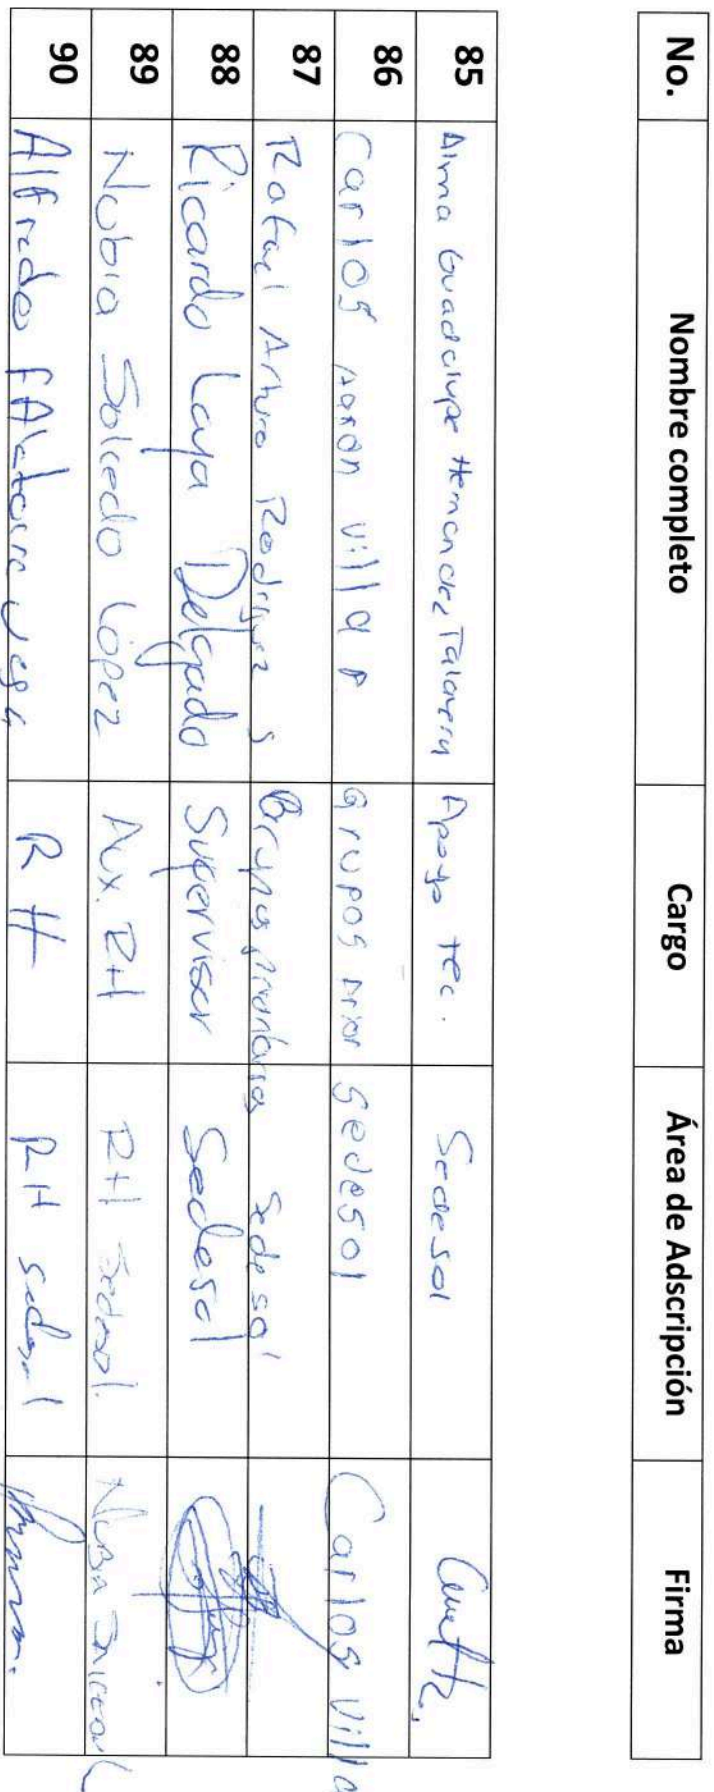 No. Nombre completo Cargo Área de Adscripción Firma
85 Alma Guadalupe Hernandez Talavera Apoyo Tec. Sedesol
86 Carlos Aaron Villa Grupos Prior Sedesol Carlos Villa
87 Rafael Arturo Rodriguez S Grupos Prioritarios Sedesol
88 Ricardo Laya Delgado Supervisor Sedesol
89 Nubia Salcedo López Aux. RH RH Sedesol.
90 Alfredo RH RH Sedesol